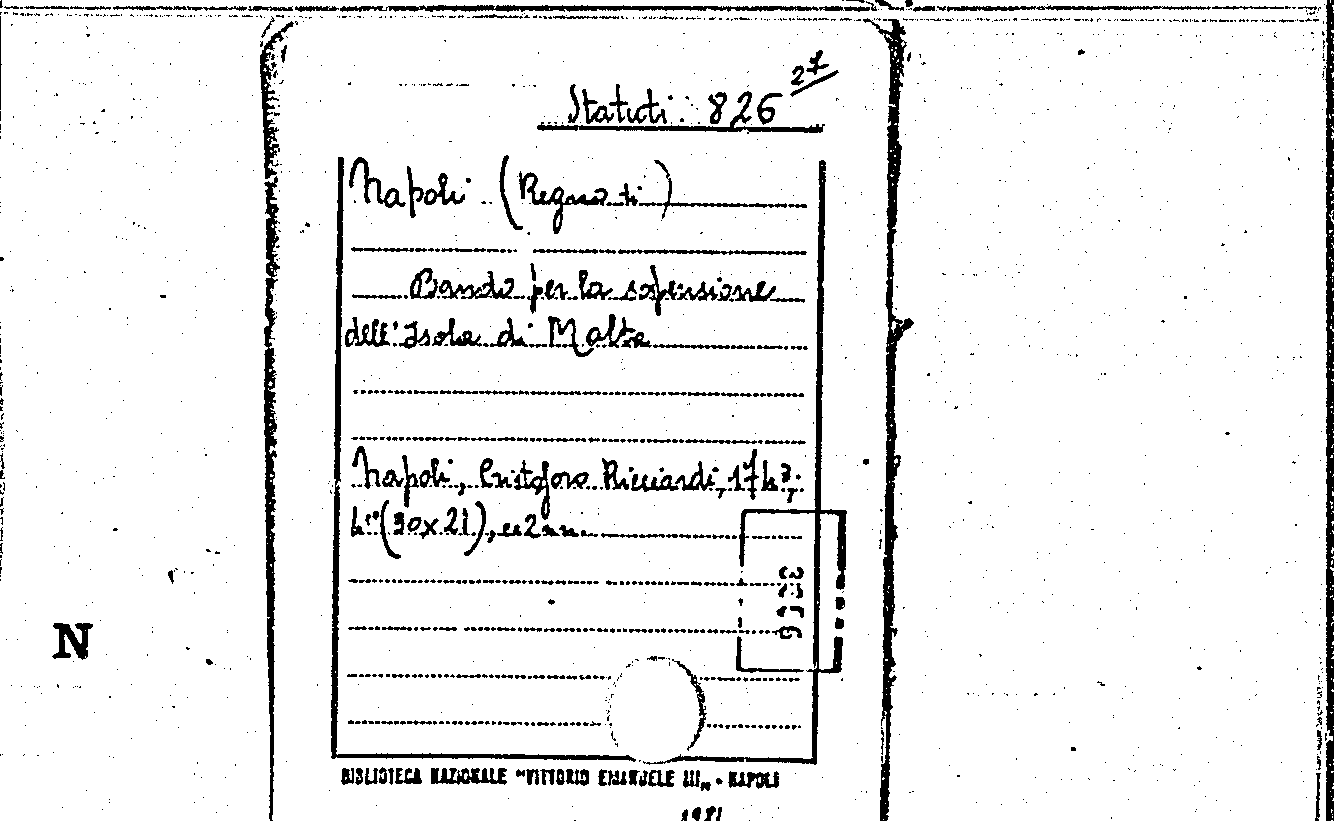 Statuti. 826 27
Napoli (Regno di)
Bando per la sospensione
dell'Isola di Malta
Napoli, Cristoforo Ricciardi, 1743;
4° (30x21), cc 2 nn.
N
BIBLIOTECA NAZIONALE "VITTORIO EMANUELE III" - NAPOLI